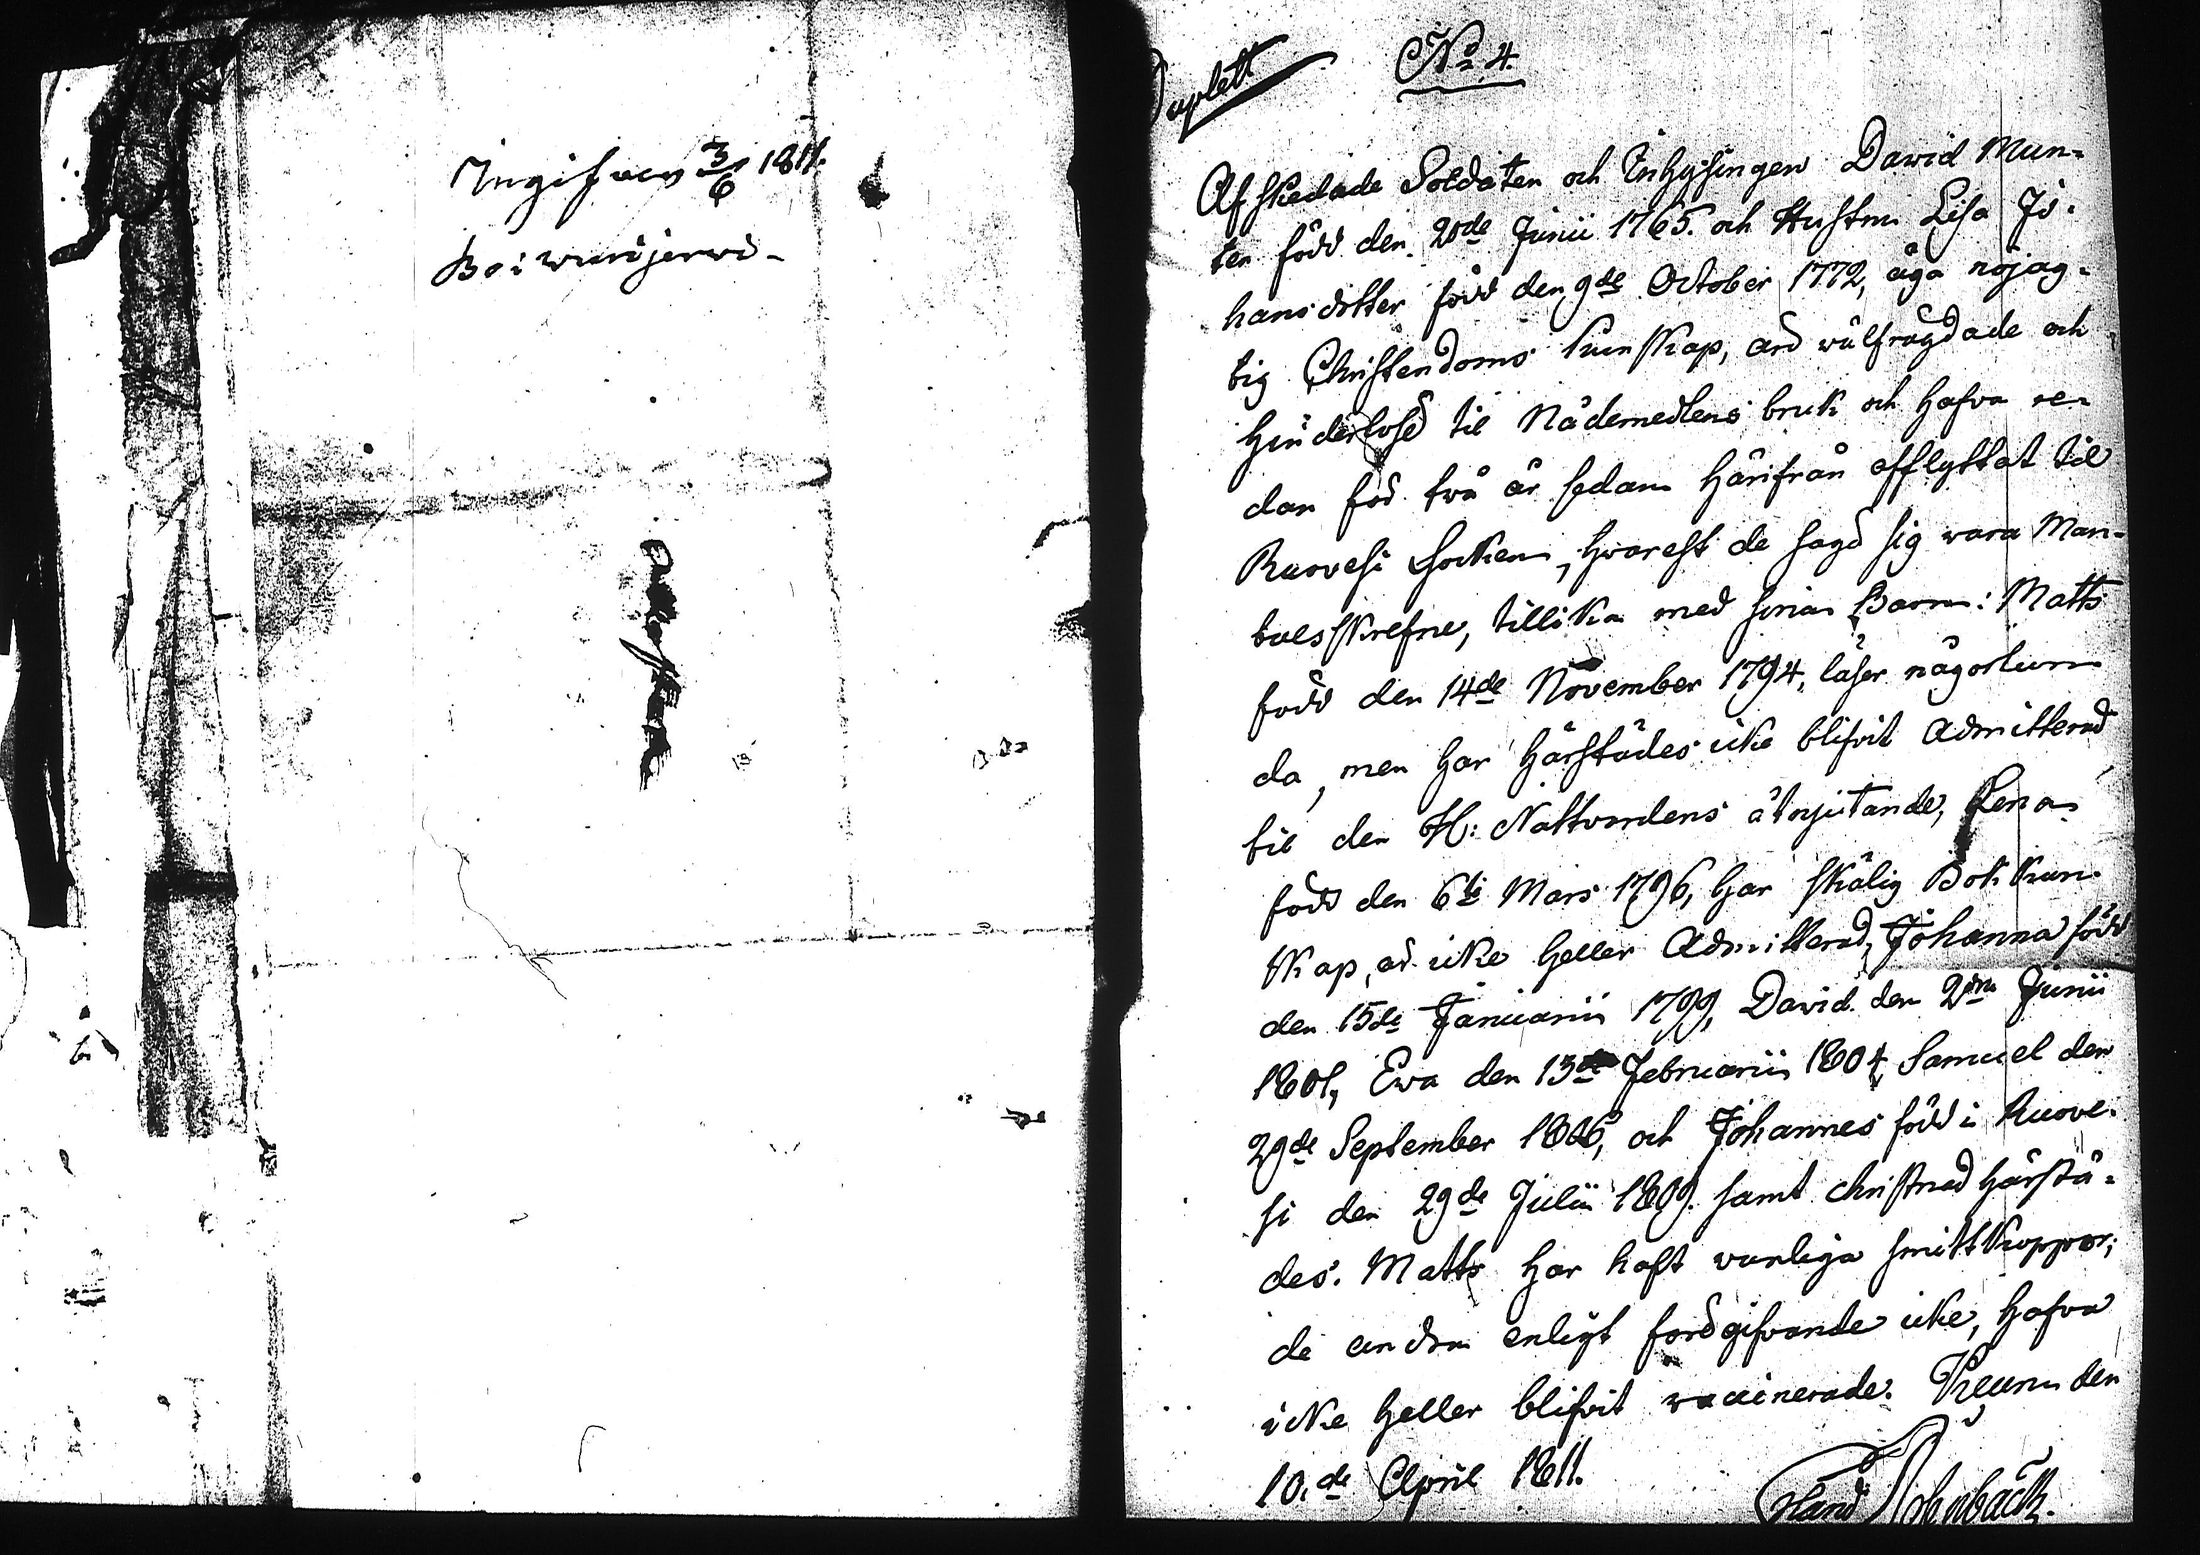 Ingifven 3/6 1811.
Duplett
No 4.
Afskedade Soldaten och Inhysingen David Mun-
ter född den 20de Junii 1765. och Hustru Lisa Jo-
hansdotter född den 9de October 1772, äga nöjag-
tig Christendoms kunskap, äro välfrägdade och
hinderlöse til Nådemedlens bruk och hafva re-
dan för två år sedan härifrån afflyttat til
Ruovesi Socken, hvarest de sagd sig vara Man-
talsskrefne, tillika med sina Barn: Matts
född den 14de November 1794, läser någorlun-
da, men har härstädes icke blifvit admitterad
til den H: Nattvardens åtnjutande, Lena
född den 6ti Mars 1796, har skälig Bok kun-
skap, är icke heller Admitterad, Johanna född
den 15de Januarii 1799, David den 2dra Junii
1801, Eva den 13de Februarii 1804, Samuel den
29de September 1806, och Johannes född i Ruove-
si den 29de Julii 1809. samt christnad härstä-
des. Matts har haft vanliga smittkoppor,
de andra enligt fördgifvande icke, hafva
icke heller blifvit vaccinerade. Keuru den
10.de April 1811.